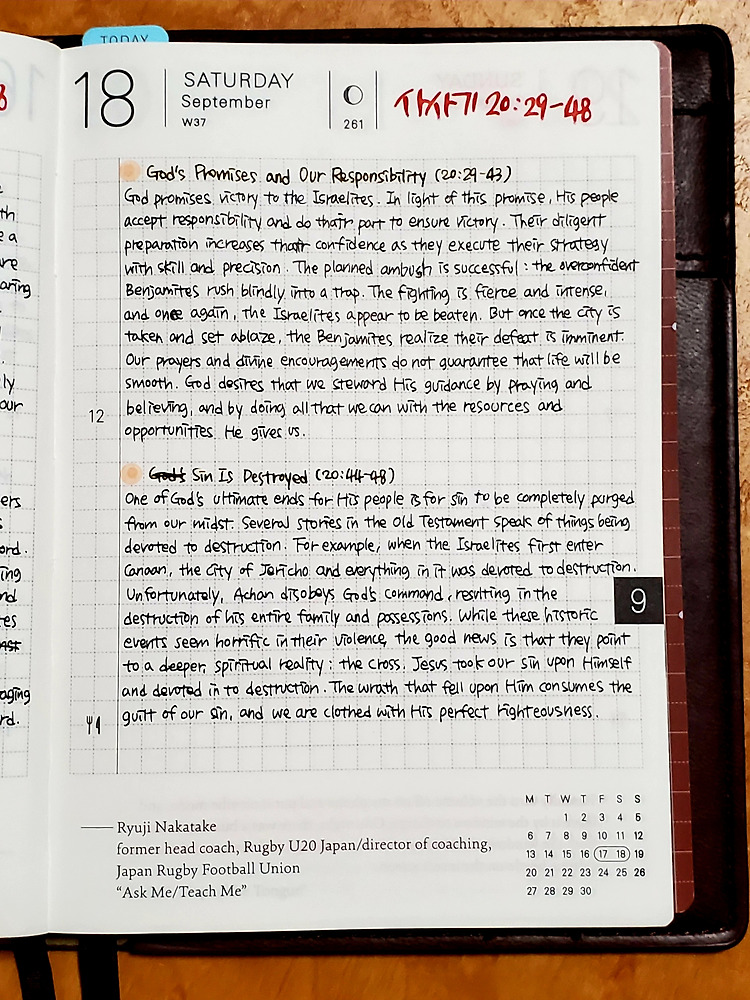 TODAY
18
SATURDAY
September
W37
261
사사기 20:29-48
God's Promises and Our Responsibility (20:29-43)
God promises victory to the Israelites. In light of this promise, His people
accept responsibility and do their part to ensure victory. Their diligent
preparation increases their confidence as they execute their strategy
with skill and precision. The planned ambush is successful: the overconfident
Benjamites rush blindly into a trap. The fighting is fierce and intense,
and once again, the Israelites appear to be beaten. But once the city is
taken and set ablaze, the Benjamites realize their defeat is imminent.
Our prayers and divine encouragements do not guarantee that life will be
smooth. God desires that we steward His guidance by praying and
12
believing, and by doing all that we can with the resources and
opportunities He gives us.
God's Sin Is Destroyed (20:44-48)
One of God's ultimate ends for His people is for sin to be completely purged
from our midst. Several stories in the Old Testament speak of things being
devoted to destruction. For example, when the Israelites first enter
Canaan, the city of Jericho and everything in it was devoted to destruction.
Unfortunately, Achan disobeys God's command, resulting in the
9
destruction of his entire family and possessions. While these historic
events seem horrific in their violence, the good news is that they point
to a deeper, spiritual reality: the cross. Jesus took our sin upon Himself
and devoted in to destruction. The wrath that fell upon Him consumes the
guilt of our sin, and we are clothed with His perfect righteousness.
Ryuji Nakatake
former head coach, Rugby U20 Japan/director of coaching,
Japan Rugby Football Union
“Ask Me/Teach Me”
M T W T F S S
1 2 3 4 5
6 7 8 9 10 11 12
13 14 15 16 17 18 19
20 21 22 23 24 25 26
27 28 29 30